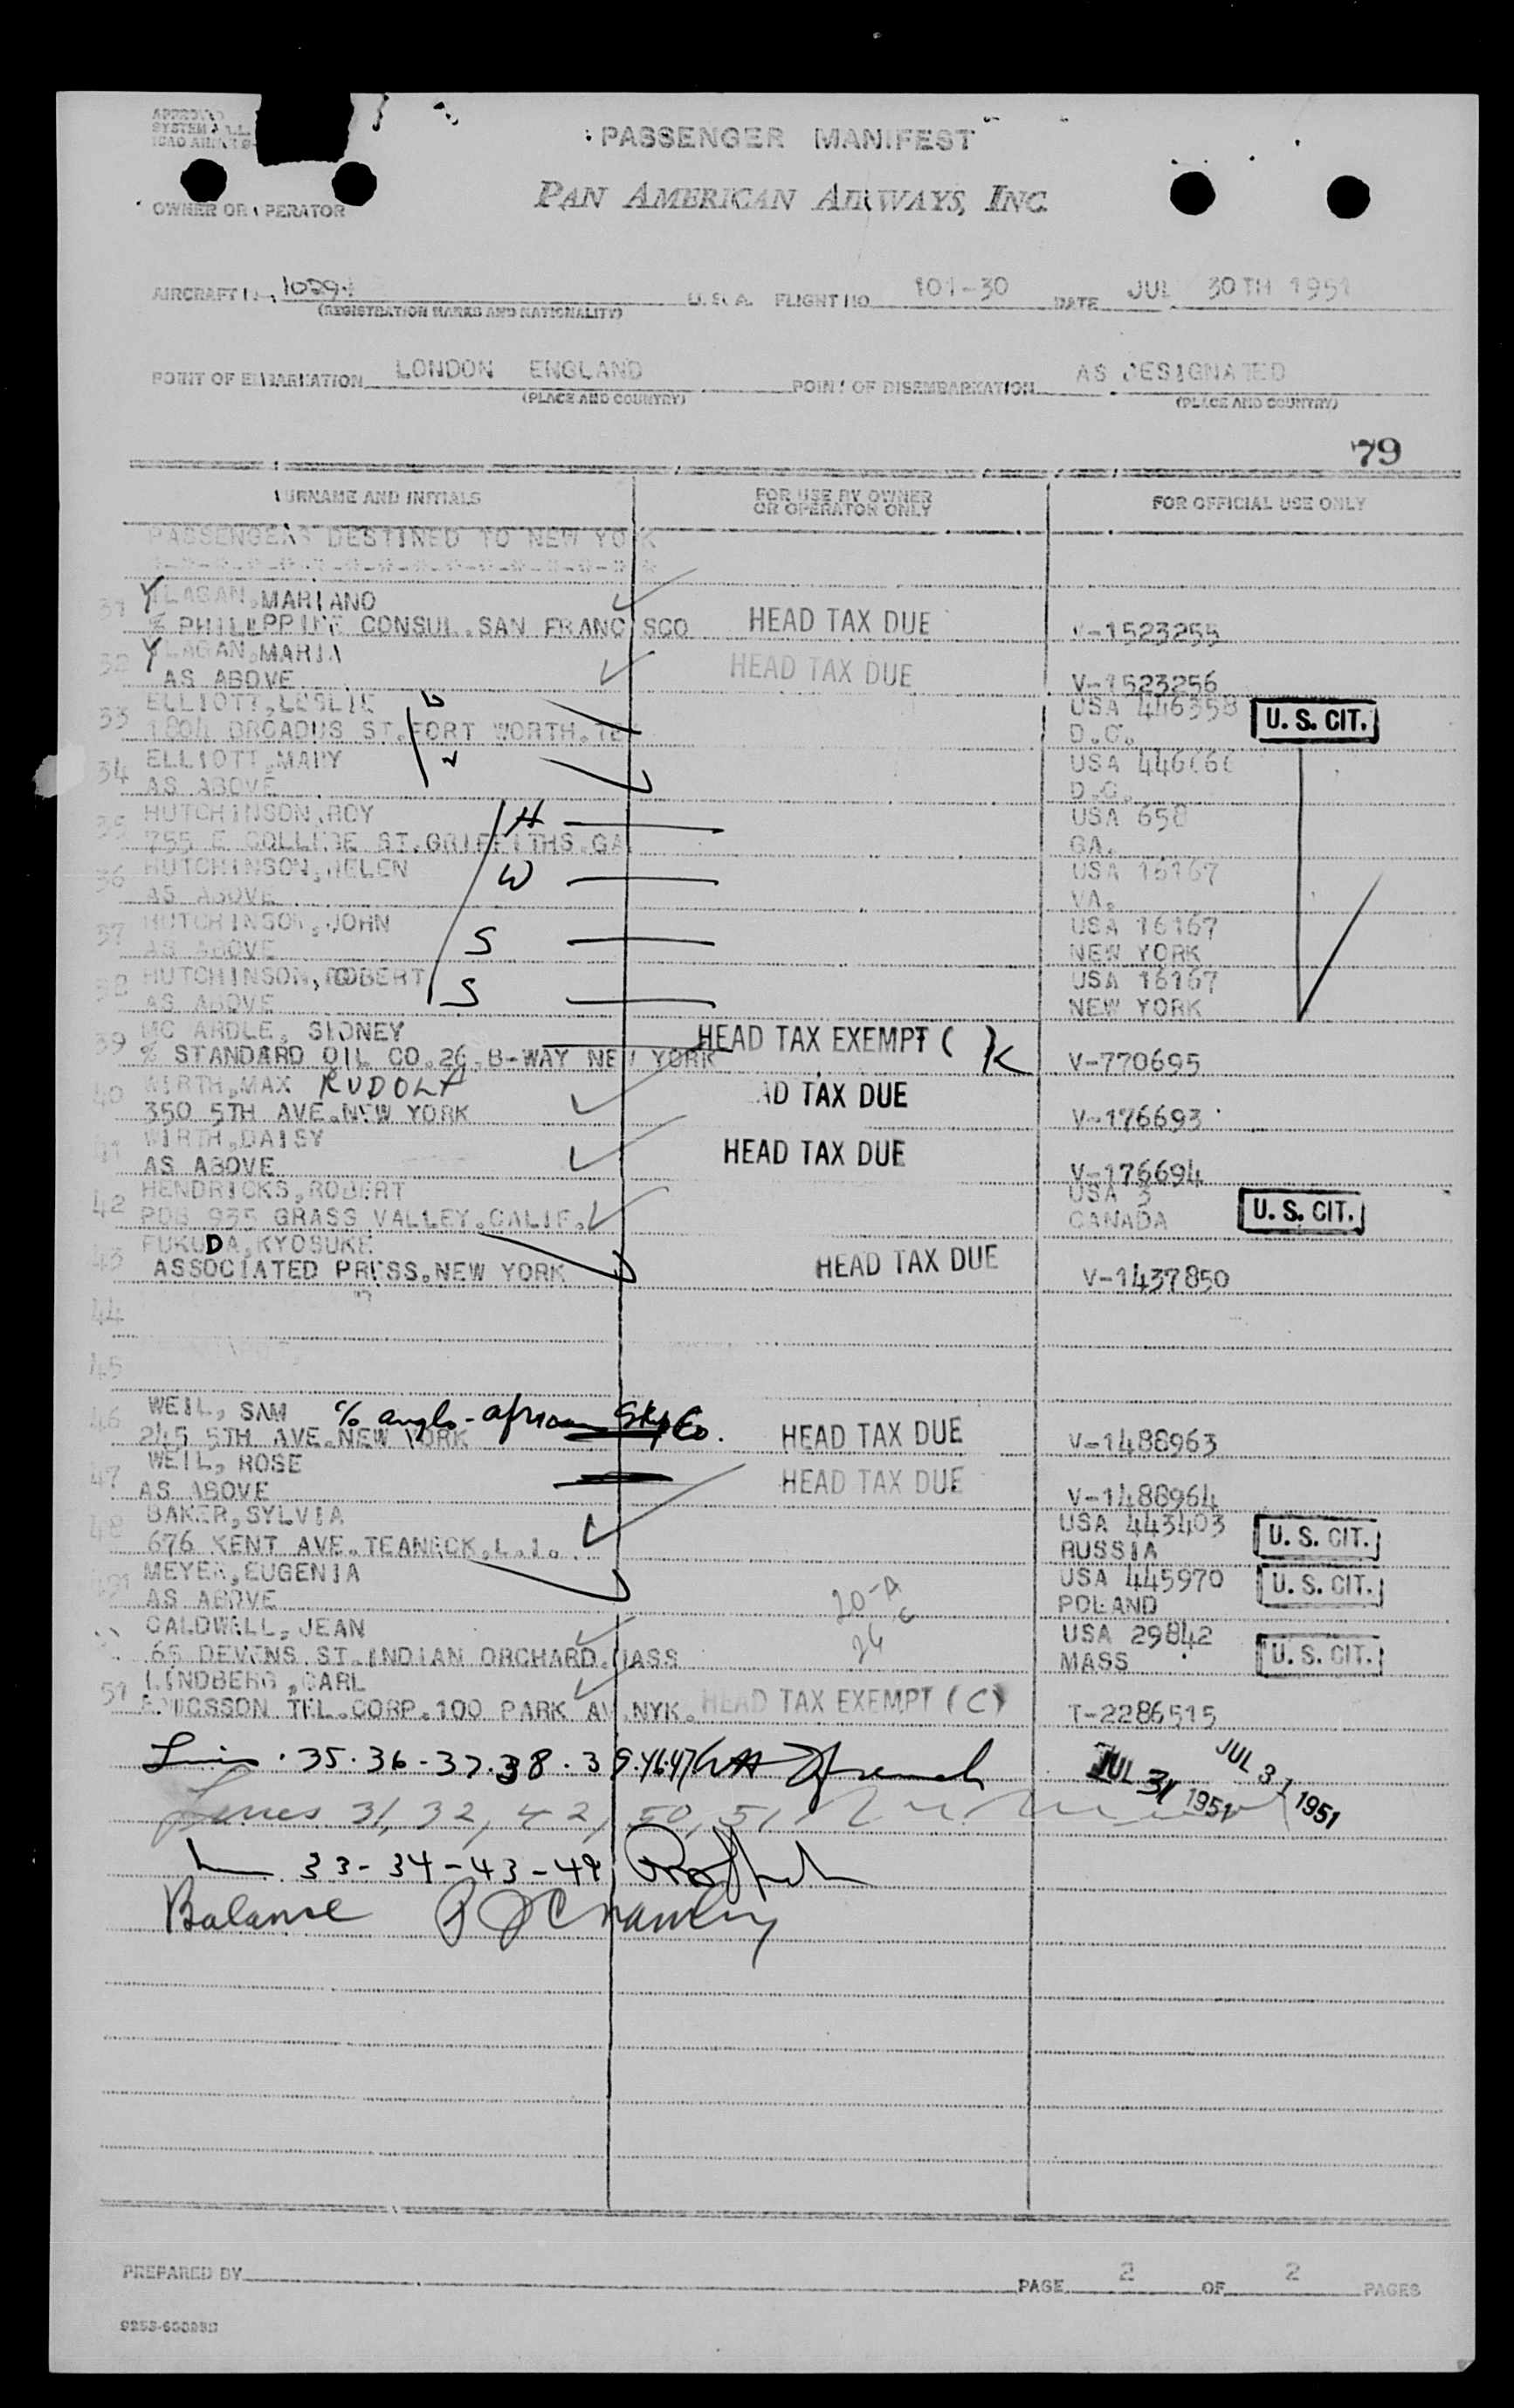 PASSENGER MANIFEST
PAN AMERICAN AIRWAYS, INC.
OWNER OR OPERATOR
AIRCRAFT U.S.A. FLIGHT NO 101-30 DATE JUL 30TH 1951
(REGISTRATION MARKS AND NATIONALITY)
POINT OF EMBARKATION LONDON ENGLAND POINT OF DISEMBARKATION AS DESIGNATED
(PLACE AND COUNTRY) (PLACE AND COUNTRY)
79
SURNAME AND INITIALS FOR USE BY OWNER OR OPERATOR ONLY FOR OFFICIAL USE ONLY
PASSENGERS DESTINED TO NEW YORK
31 YLAGAN, MARIANO
% PHILIPPINE CONSUL. SAN FRANCISCO HEAD TAX DUE V-1523255
32 YLAGAN, MARIA HEAD TAX DUE
AS ABOVE V-1523256
33 ELLIOTT, LESLIE USA 446358 U. S. CIT.
1804 BROADUS ST. FORT WORTH. TEX D.C.
34 ELLIOTT, MARY W USA
AS ABOVE D.C.
35 HUTCHINSON, ROY H USA 658
755 E COLLEGE ST. GRIFFITHS. GA GA.
36 HUTCHINSON, HELEN W USA 16167
AS ABOVE VA.
37 HUTCHINSON, JOHN S USA 16167
AS ABOVE NEW YORK
38 HUTCHINSON, ROBERT S USA 16167
AS ABOVE NEW YORK
39 MC ARDLE, SIDNEY HEAD TAX EXEMPT ( )K
% STANDARD OIL CO. 26, B-WAY NEW YORK V-770695
40 WIRTH, MAX RUDOLF AD TAX DUE
350 5TH AVE. NEW YORK V-176693
41 WIRTH, DAISY HEAD TAX DUE
AS ABOVE V-176694
42 HENDRICKS, ROBERT USA 3 U. S. CIT.
POB 935 GRASS VALLEY. CALIF. CANADA
43 FUKUDA, KYOSUKE HEAD TAX DUE
ASSOCIATED PRESS. NEW YORK V-1437850
44
45
46 WEIL, SAM % anglo-african Co.
245 5TH AVE. NEW YORK HEAD TAX DUE V-1488963
47 WEIL, ROSE HEAD TAX DUE
AS ABOVE V-1488964
48 BAKER, SYLVIA USA 443403 U. S. CIT.
676 KENT AVE. TEANECK. L.I. RUSSIA
49 MEYER, EUGENIA USA 445970 U. S. CIT.
AS ABOVE POLAND
CALDWELL, JEAN USA 29842 U. S. CIT.
65 DEVENS ST. INDIAN ORCHARD. MASS MASS
51 LINDBERG, CARL HEAD TAX EXEMPT (C)
ERICSSON TEL. CORP. 100 PARK AV. NYK. T-2286515
35-36-37-38-39-46-47 JUL 31 1951 JUL 31 1951
Lines 31, 32, 42, 50, 51
33-34-43-49
Balance
PREPARED BY PAGE 2 OF 2 PAGES